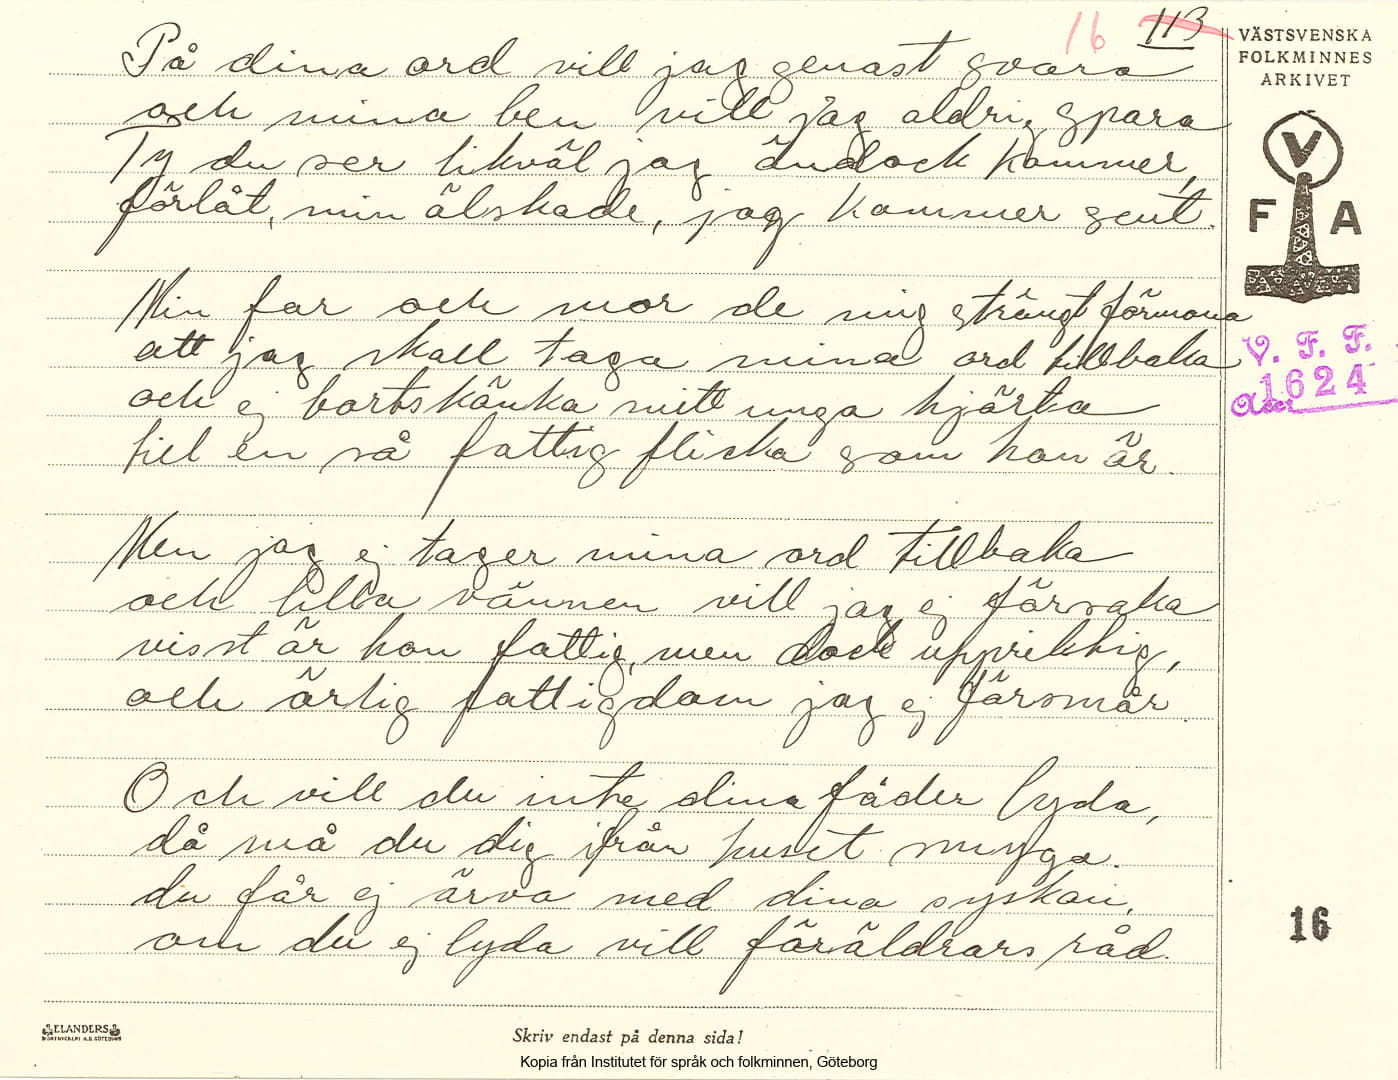 16 113
På dina ord vill jag genast svara
och mina ben vill jag aldrig spara
Ty du ser likväl jag ändock kommer,
förlåt, min älskade, jag kommer sent.
Min far och mor de mig strängt förmana
att jag skall taga mina ord tillbaka
och ej bortskänka mitt unga hjärta
till en så fattig flicka som hon är.
Men jag ej tager mina ord tillbaka
och lilla vännen vill jag ej försaka
visst är hon fattig, men dock uppriktig,
och ärlig fattigdom jag ej försmår
Och vill du inte dina fäder lyda,
då må du dig ifrån huset smyga.
du får ej ärva med dina syskon,
om du ej lyda vill föräldrars råd.
VÄSTSVENSKA
FOLKMINNES
ARKIVET
V
F A
V. F. F.
Acc. 1624
16
ELANDERS
BOKTRYCKERI A.B. GÖTEBORG
Skriv endast på denna sida!
Kopia från Institutet för språk och folkminnen, Göteborg